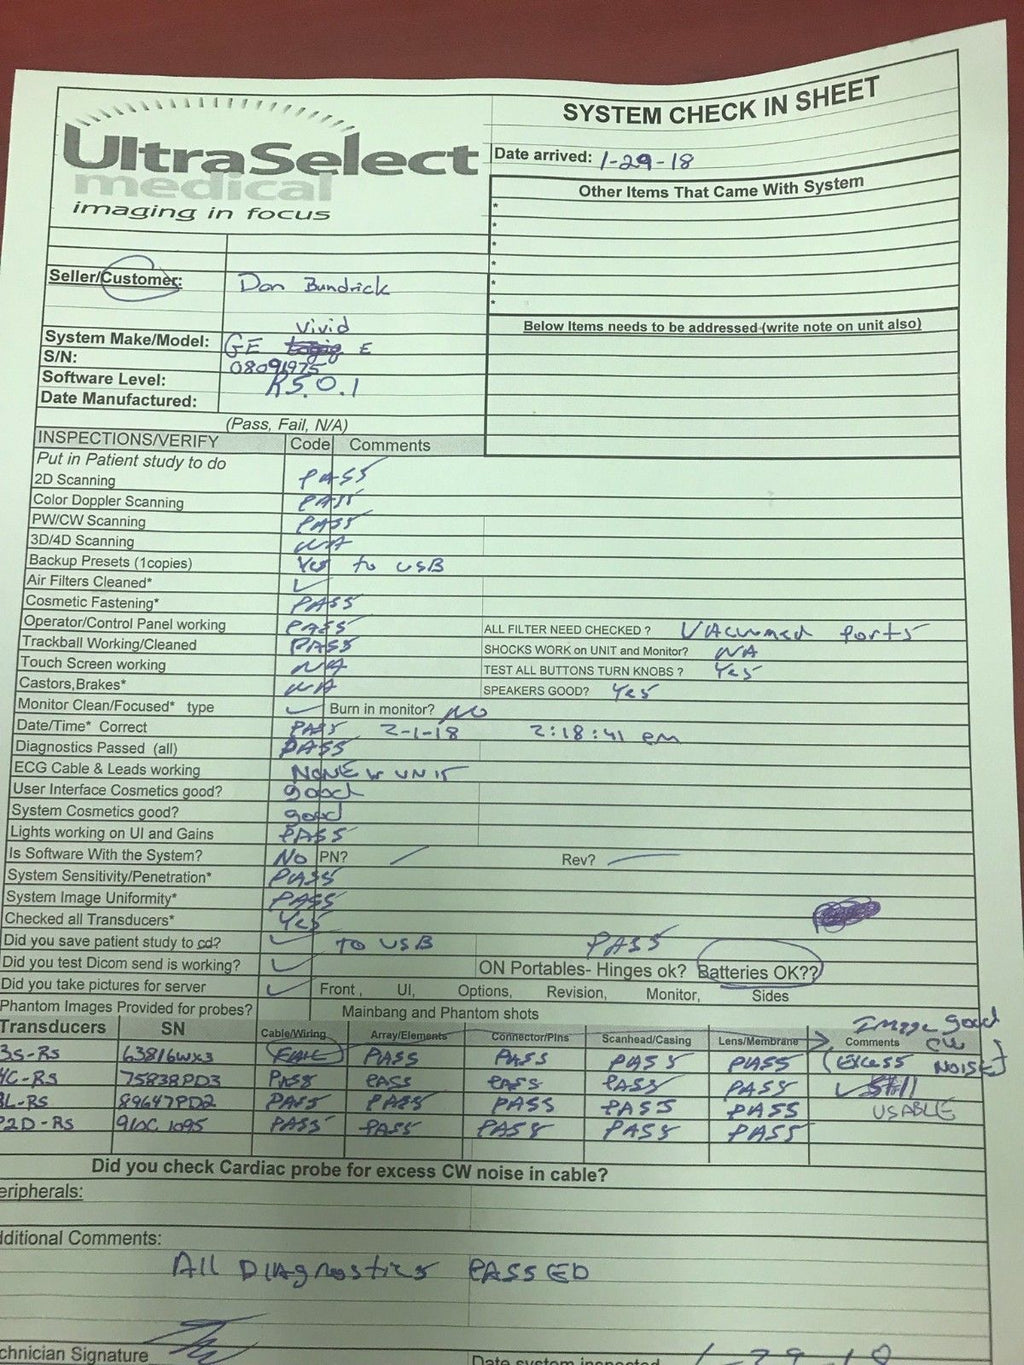 SYSTEM CHECK IN SHEET
UltraSelect
medical
imaging in focus
Date arrived: 1-29-18
Other Items That Came With System
*
*
*
*
*
*
Seller/Customer: Don Bundrick
Below Items needs to be addressed (write note on unit also)
Vivid
System Make/Model: GE E
S/N: 08091975
Software Level: R5.0.1
Date Manufactured:
(Pass, Fail, N/A)
INSPECTIONS/VERIFY Code Comments
Put in Patient study to do
2D Scanning PASS
Color Doppler Scanning PASS
PW/CW Scanning PASS
3D/4D Scanning NA
Backup Presets (1copies) Yes to USB
Air Filters Cleaned* ✓
Cosmetic Fastening* PASS
Operator/Control Panel working PASS ALL FILTER NEED CHECKED ? VAcuumed ports
Trackball Working/Cleaned PASS SHOCKS WORK on UNIT and Monitor? NA
Touch Screen working NA TEST ALL BUTTONS TURN KNOBS ? Yes
Castors,Brakes* NA SPEAKERS GOOD? Yes
Monitor Clean/Focused* type ✓ Burn in monitor? NO
Date/Time* Correct PASS 2-1-18 2:18:41 pm
Diagnostics Passed (all) PASS
ECG Cable & Leads working NONE w UNIT
User Interface Cosmetics good? good
System Cosmetics good? good
Lights working on UI and Gains PASS
Is Software With the System? NO PN? Rev?
System Sensitivity/Penetration* PASS
System Image Uniformity* PASS
Checked all Transducers* Yes
Did you save patient study to cd? ✓ TO USB PASS
Did you test Dicom send is working? ✓ ON Portables- Hinges ok? Batteries OK??
Did you take pictures for server ✓ Front , UI, Options, Revision, Monitor, Sides
Phantom Images Provided for probes? Mainbang and Phantom shots
Image good
Transducers SN Cable/Wiring Array/Elements Connector/Pins Scanhead/Casing Lens/Membrane Comments CW
3S-RS 63816WX3 FAIL PASS PASS PASS PASS (EXCESS NOISE)
4C-RS 75838PD3 PASS PASS PASS PASS PASS ✓ Still
8L-RS 89647PD2 PASS PASS PASS PASS PASS USABLE
P2D-RS 910C 1095 PASS PASS PASS PASS PASS
Did you check Cardiac probe for excess CW noise in cable?
eripherals:
dditional Comments:
All DIAgnostics PASSED
chnician Signature Date system inspected 1-29-18